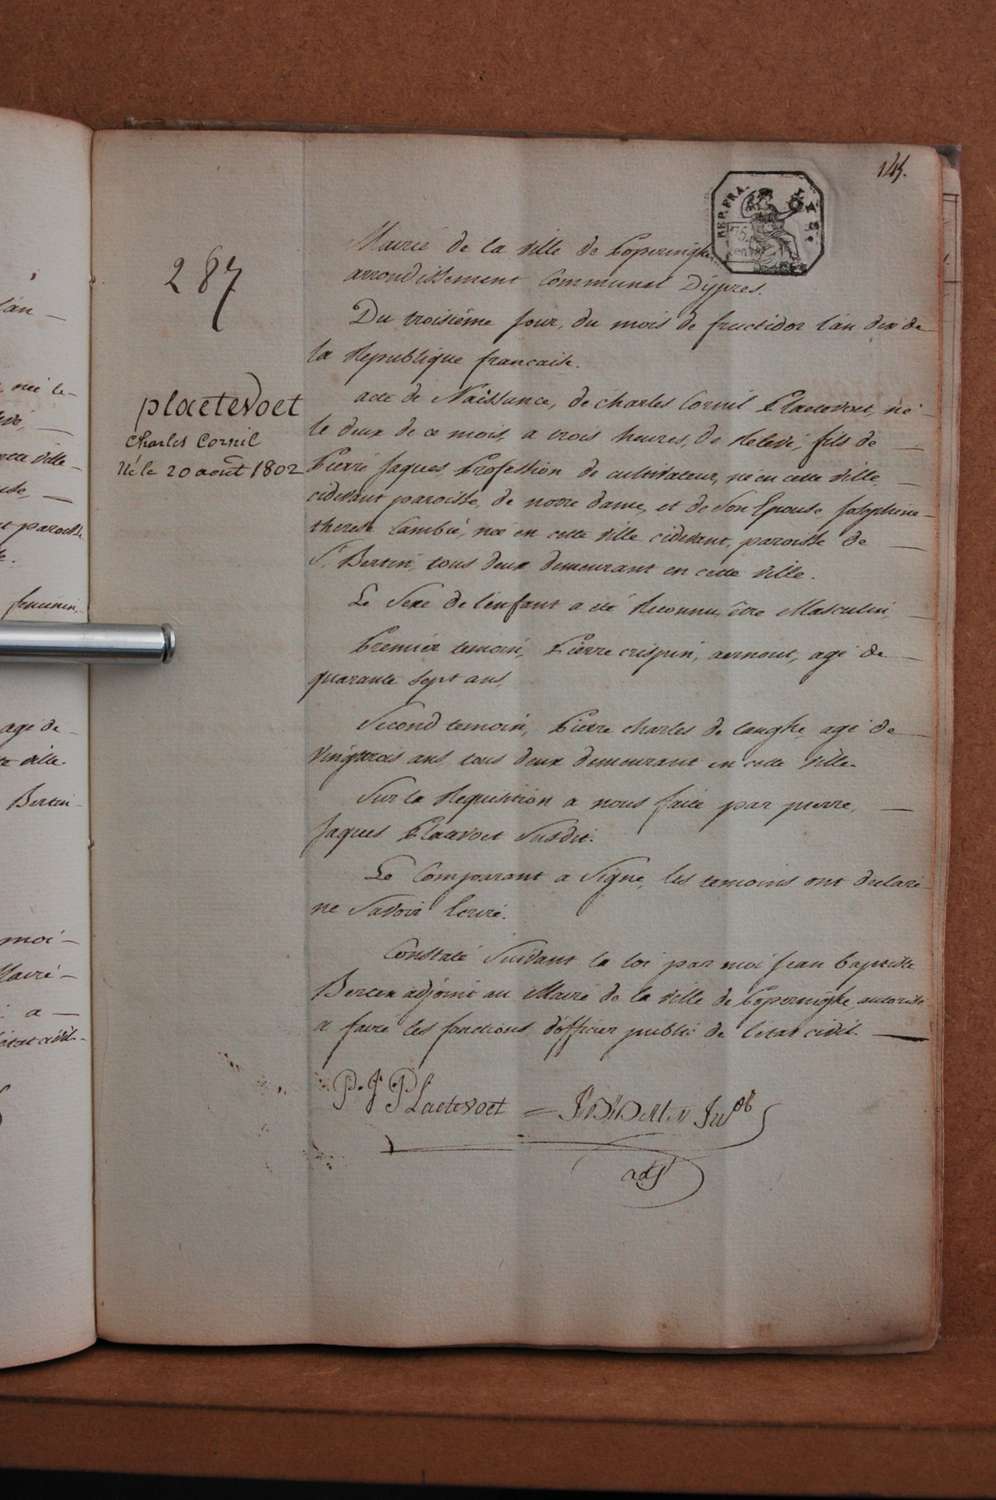 145.
REP. FRA.
287
Mairie de la ville de Poperinghe
arrondissement Communal D'ypres.
Du troisiéme jour, du mois de fructidor l'an dix de
la Republique francaise.
plaetevoet
Charles Cornil
Né le 20 août 1802
acte de Naissance, de charles Cornil Plaetevoet, né
le deux de ce mois, a trois heures, de Relevé, fils de
Pierre Jaques, Profession de cultivateur, né en cette ville
cidevant paroisse, de notre dame, et de Son Epouse Josephine
therese Cambié, née en cette ville cidevant, paroisse de
St Bertin, tous deux demeurant en cette ville.
Le Sexe de l'enfant a été Reconnu être Masculin,
Premier temoin, Pierre crispin, aernout, agé de
quarante sept ans,
Second temoin, Pierre charles de caughe agé de
vingttrois ans tous deux demeurant en cette ville.
Sur la Requisition a nous faite par pierre,
Jaques Plaetvoet Susdit.
Le Comparant a Signé, les temoins ont declaré
ne Savoir Ecrire.
Constaté Suivant la loi par moi jean baptiste
Berten adjoint au Maire de la ville de Poperinghe, autorisé
a faire les fonctions d'officier public de l'etat civil.
P. J. Plaetevoet
adj
an
née le
cette ville
paroisse
feminin
agé de
ville.
Bertin
moi
Maire
a
état civil